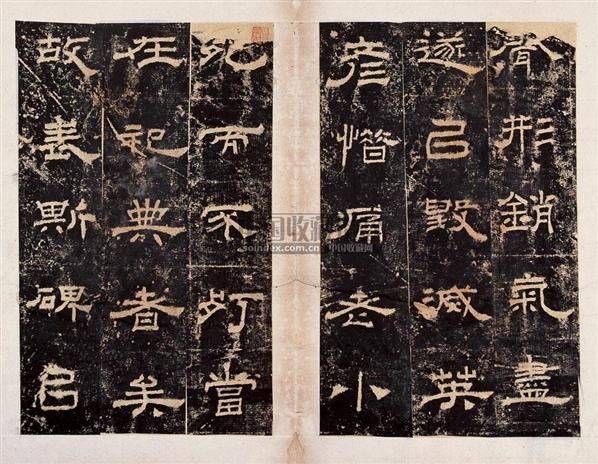 形銷氣盡
遂已毀滅英
彦憯痛老小
死而不朽當
在祀典者矣
故表斯碑
国收藏
soindex.com.cn 中国收藏网